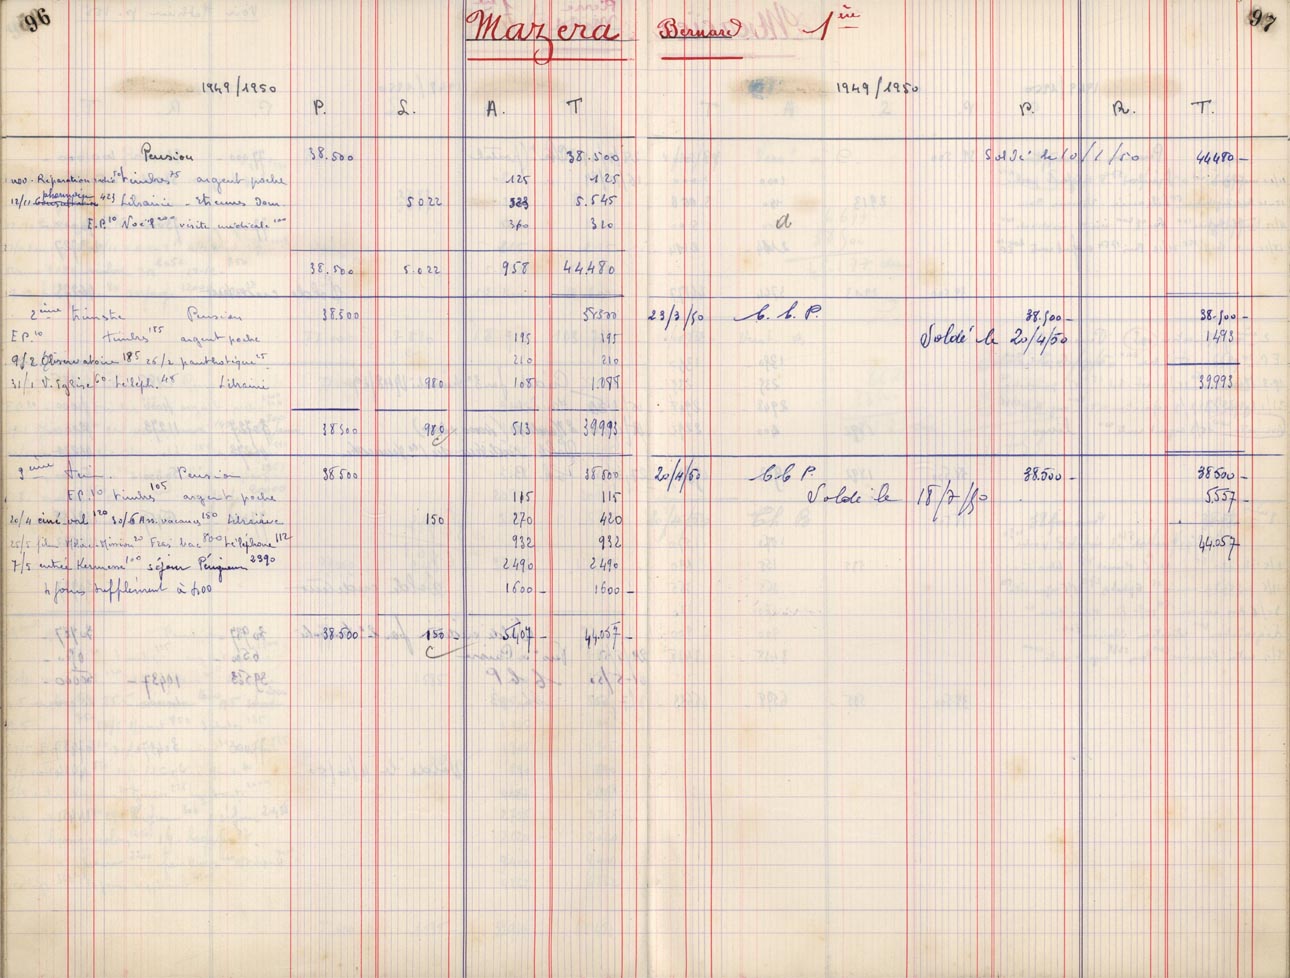 96
Mazera Bernard 1ère
97
1949/1950
P. L. A. T
Pension 38.500 38.500
nov. Réparation timbres 75 argent poche 125 125
12/11 pharmacie 423 Librairie - Etrennes dom. 5022 523 5.545
E.P. 10 Noël 200 visite médicale 100 310 310
38.500 5.022 958 44.480
2ème trimstre Pension 38.500 38.500
E P. 10 timbres 185 argent poche 195 195
9/2 Observatoire 185 25/2 25 210 210
31/1 V. Eglise 60 téléph. 48 Librairie 980 108 1.088
38500 980 513 39993
3ème Trim. Pension 38500 38500
E P. 10 timbres 105 argent poche 115 115
20/4 ciné val 120 30/6 Ass. vacances 150 Librairie 150 270 420
25/5 film Mission 20 Frais bac 800 téléphone 112 932 932
7/5 entrée Kermesse 100 séjour Périgueux 2390 2490 2490
4 jours supplément à 400 1600 - 1600 -
38.500 150 - 5407 - 44.057 -
1949/1950
P. R. T.
Soldé le 10/1/50 44480 -
a
23/3/50 C. C. P. 38.500 - 38.500 -
Soldé le 20/4/50 1493
39993
20/4/50 C C P. 38.500 - 38500 -
Soldé le 18/7/50 5557
44.057